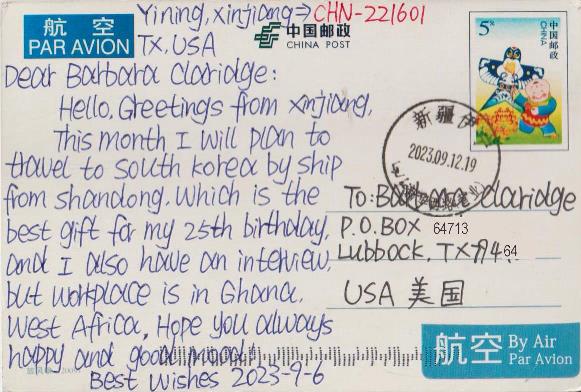 航空
PAR AVION
Yining, Xinjiang→CHN-221601
TX, USA
中国邮政
CHINA POST
5元
中国邮政
CHINA
Dear Barbara Claridge:
Hello. Greetings from Xinjiang,
This month I will plan to
travel to South Korea by ship
from Shandong. Which is the
best gift for my 25th birthday,
and I also have an interview,
but workplace is in Ghana,
West Africa, Hope you always
happy and good mood!
Best Wishes 2023-9-6
新疆伊
2023.09.12.19
To: Barbara Claridge
P.O.BOX 64713
Lubbock, TX79464
USA 美国
航空 By Air
Par Avion